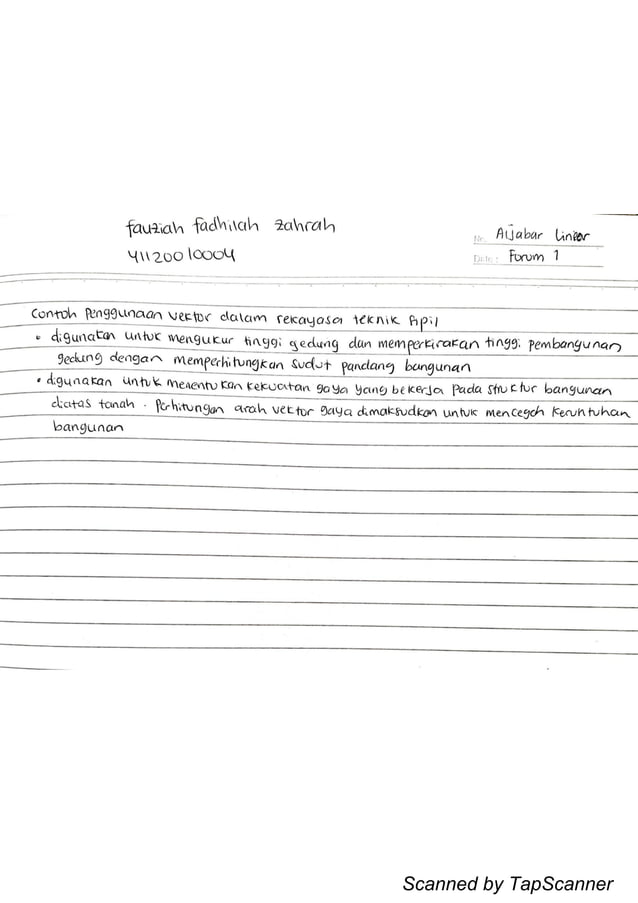 fauziah fadhilah zahrah
41120010004
No. Aljabar Linear
Date: Forum 1
Contoh Penggunaan vektor dalam rekayasa teknik sipil
• digunakan untuk mengukur tinggi gedung dan memperkirakan tinggi pembangunan
gedung dengan memperhitungkan sudut pandang bangunan
• digunakan untuk menentukan kekuatan gaya yang bekerja pada struktur bangunan
diatas tanah. Perhitungan arah vektor gaya dimaksudkan untuk mencegah keruntuhan
bangunan
Scanned by TapScanner